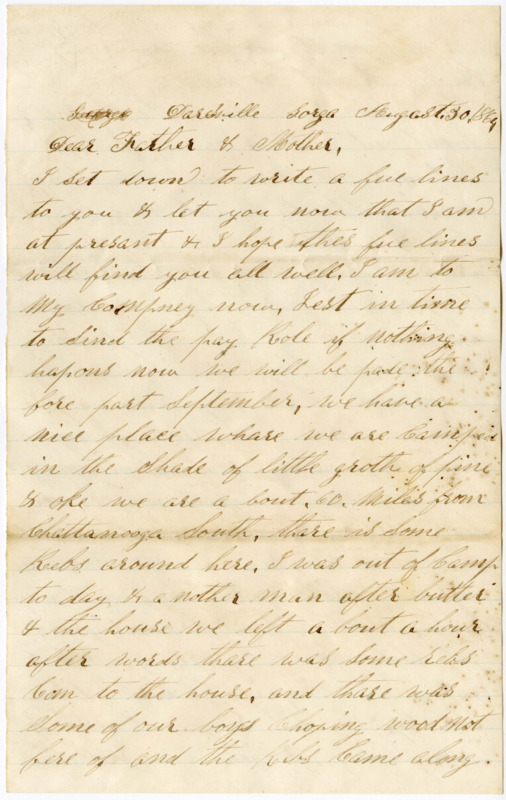 Dardsville Gorga August. 30, 1864
Dear Father & Mother,
I set down to write a fue lines
to you & let you now that I am
at presant & I hope thes fue lines
will find you all well. I am to
My Compney now, Jest in time
to Sind the pay Role if nothing
hapons now we will be pade the
fore part September, we have a
nice place whare we are Camped
in the Shade of little groth of pine
& oke we are a bout. 60. Miles from
Chattanooga South, thare is Some
Rebs around here. I was out of Camp
to day & a nother man after butter
& the house we left a bout a hour
after words thare was Some Rebs
Com to the house, and thare was
Some of our boys Choping wood not
fere of and the Rebs Came along.